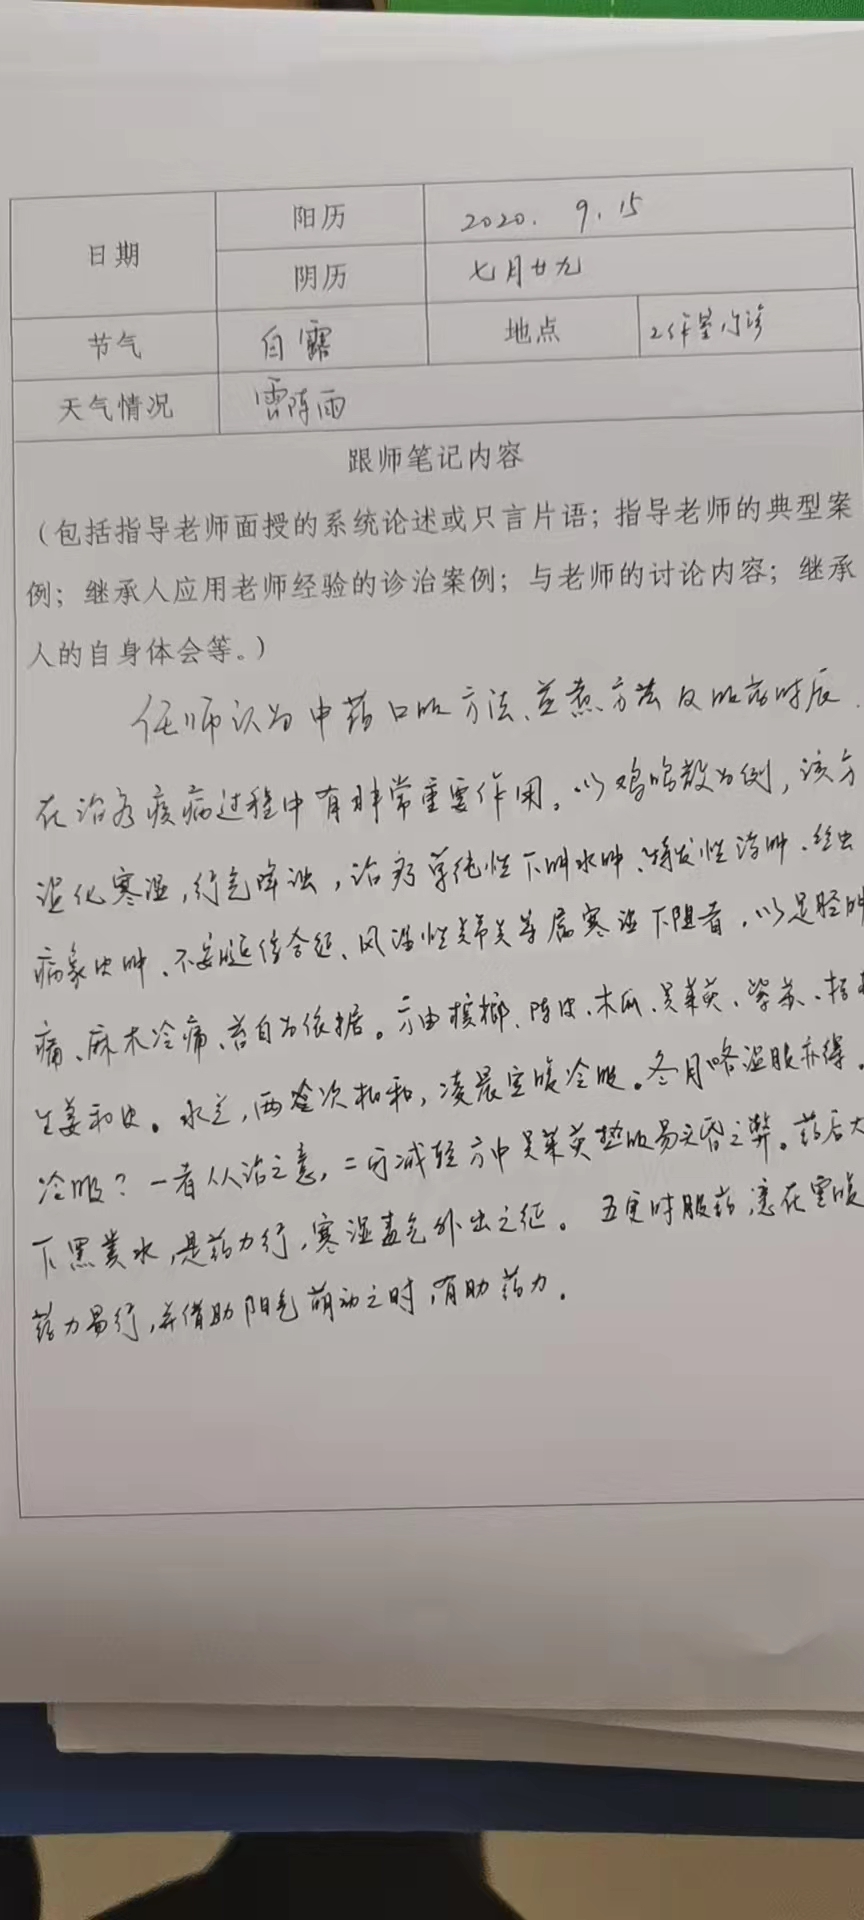 日期 阳历 2020. 9. 15
阴历 七月廿九
节气 白露 地点 工作室门诊
天气情况 雷阵雨
跟师笔记内容
（包括指导老师面授的系统论述或只言片语；指导老师的典型案
例；继承人应用老师经验的诊治案例；与老师的讨论内容；继承
人的自身体会等。）
任师认为中药口服方法、煎煮方法及服药时辰
在治疗疾病过程中有非常重要作用。以鸡鸣散为例，该方
温化寒湿，行气降浊，治疗单纯性下肢水肿、特发性浮肿、丝虫
病象皮肿、不安腿综合征、风湿性关节炎等属寒湿下阻者，以足胫肿
痛、麻木冷痛、苔白为依据。方由槟榔、陈皮、木瓜、吴茱萸、紫苏、桔梗
生姜和皮。水煎，两次相和，凌晨空腹冷服。冬月略温服亦得。
冷服？一者从治之意，二可减轻方中吴茱萸热服易头昏之弊。药后大
下黑粪水，是药力行，寒湿毒气外出之征。五更时服药，意在空腹
药力易行，并借助阳气萌动之时，有助药力。